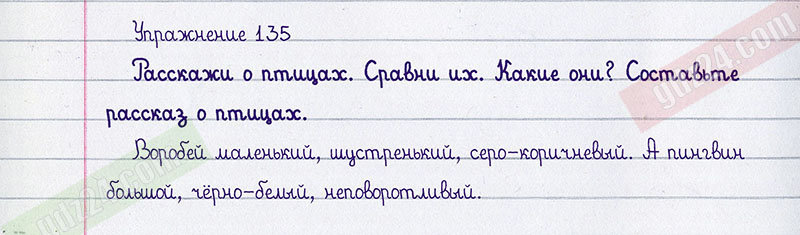 Упражнение 135
Расскажи о птицах. Сравни их. Какие они? Составьте
рассказ о птицах.
Воробей маленький, шустренький, серо-коричневый. А пингвин
большой, чёрно-белый, неповоротливый.
gdz24.com
gdz24.com